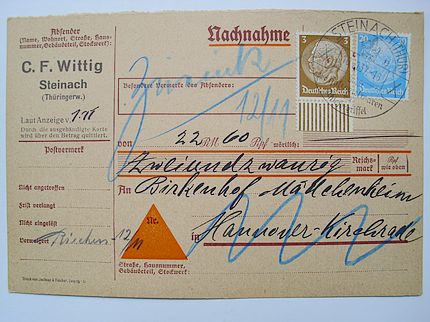 Absender
(Name, Wohnort, Straße, Haus-
nummer, Gebäudeteil, Stockwerk):
C. F. Wittig
Steinach
(Thüringerw.)
Laut Anzeige v.
Durch die ausgehändigte Karte
wird über den Betrag quittiert.
Postvermerk
Nicht angetroffen
Frist verlangt
Nicht eingelöst
Verweigert
Nachnahme
Zurück
Besondere Vermerke des Absenders:
12/11
von 22 RM 60 Rpf wörtlich:
Zweiundzwanzig
Reichs-
mark
Rpf
wie oben
An Birkenhof
Nr.
in Hannover-Kirchrode
12/11
Straße, Hausnummer,
Gebäudeteil, Stockwerk:
3 3
Deutsches Reich
Deutsches Reich
STEINACH